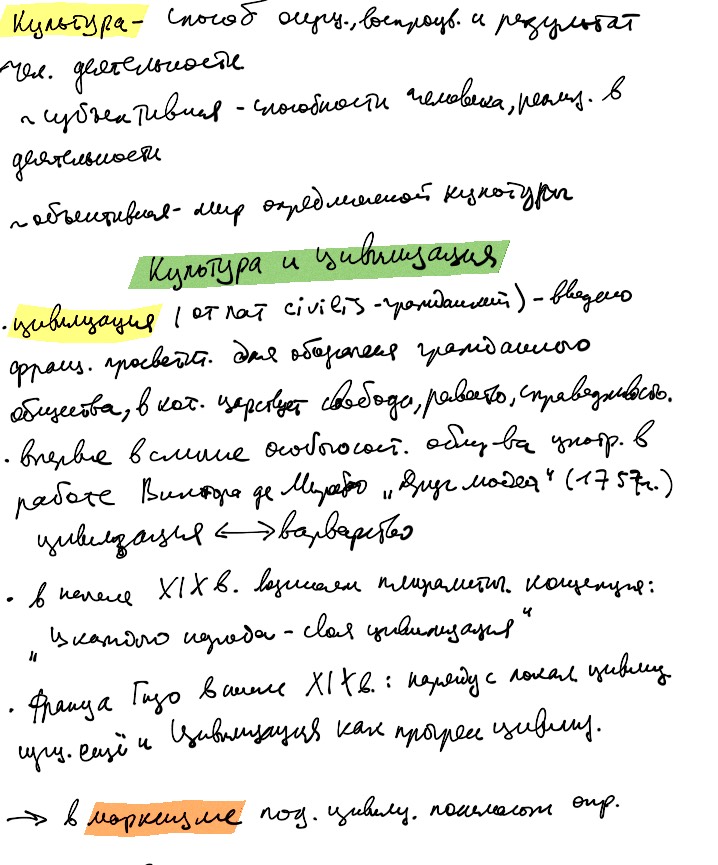 Культура - способ осущ., воспроизв. и результат
чел. деятельности
~ субъективная - способности человека, реализ. в
деятельности
~ объективная - мир определенной культуры
Культура и цивилизация
· цивилизация (от лат civilis - гражданский) - введено
франц. просветит. для обозначения гражданского
общества, в кот. царствует свобода, равенство, справедливость.
· впервые в смысле особого сост. общ-ва употр. в
работе Виктора де Мирабо „Друг людей“ (1757г.)
цивилизация ⟷ варварство
· в начале XIX в. возникает концепция:
„У каждого народа - своя цивилизация“
· Франсуа Гизо в XIX в.: наряду с локал. цивилиз
сущ. ещё и Цивилизация как прогресс цивилиз.
→ в марксизме под. цивилиз. понимают опр.